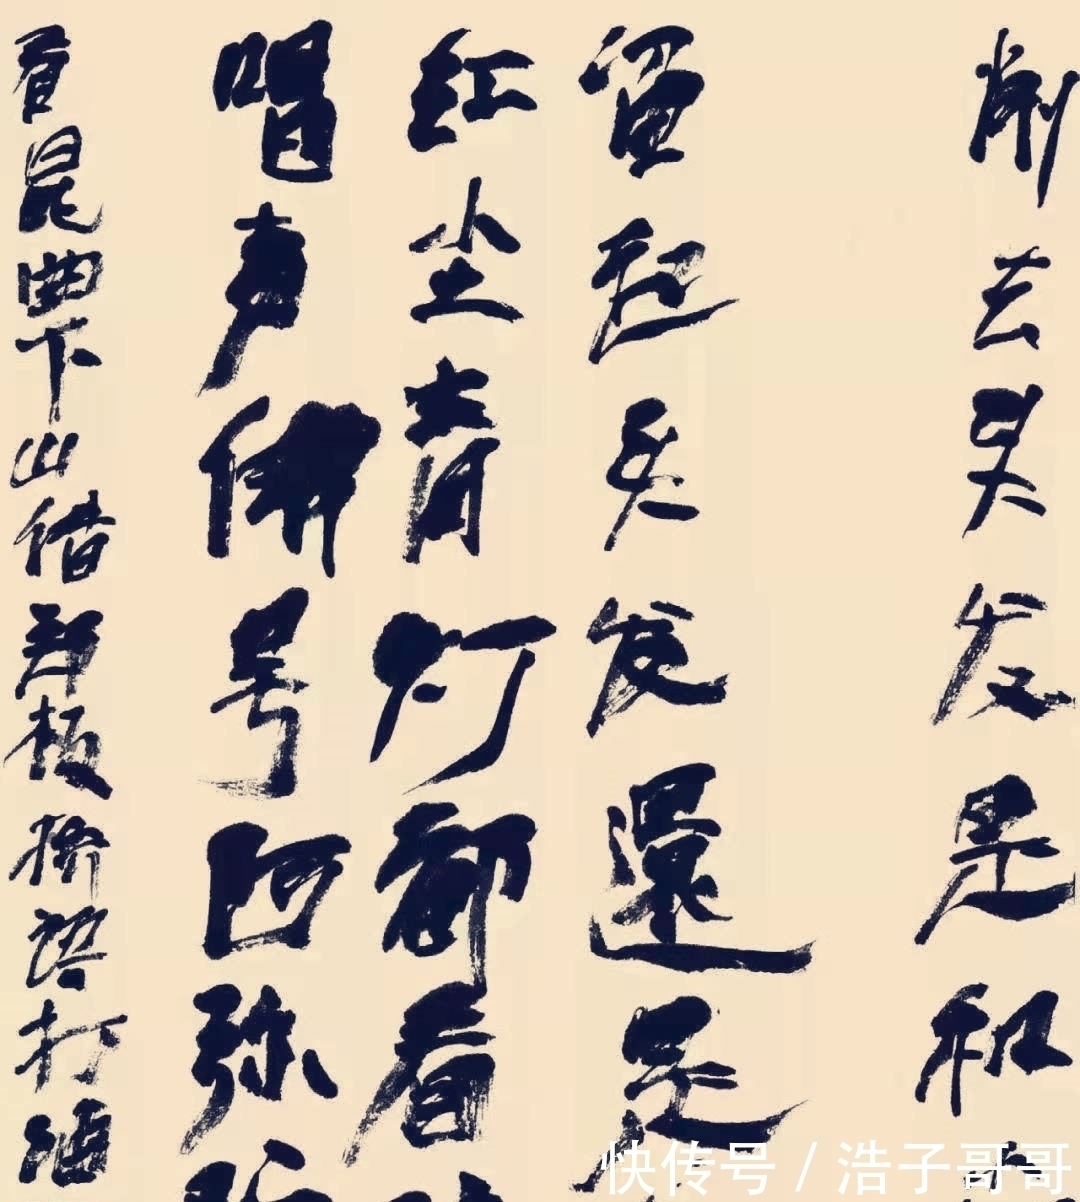 削去臭发是和
留起发還是
红尘青灯都看
唱声佛号阿弥
看昆曲下山借郑板桥语打酒
快传号 / 浩子哥哥